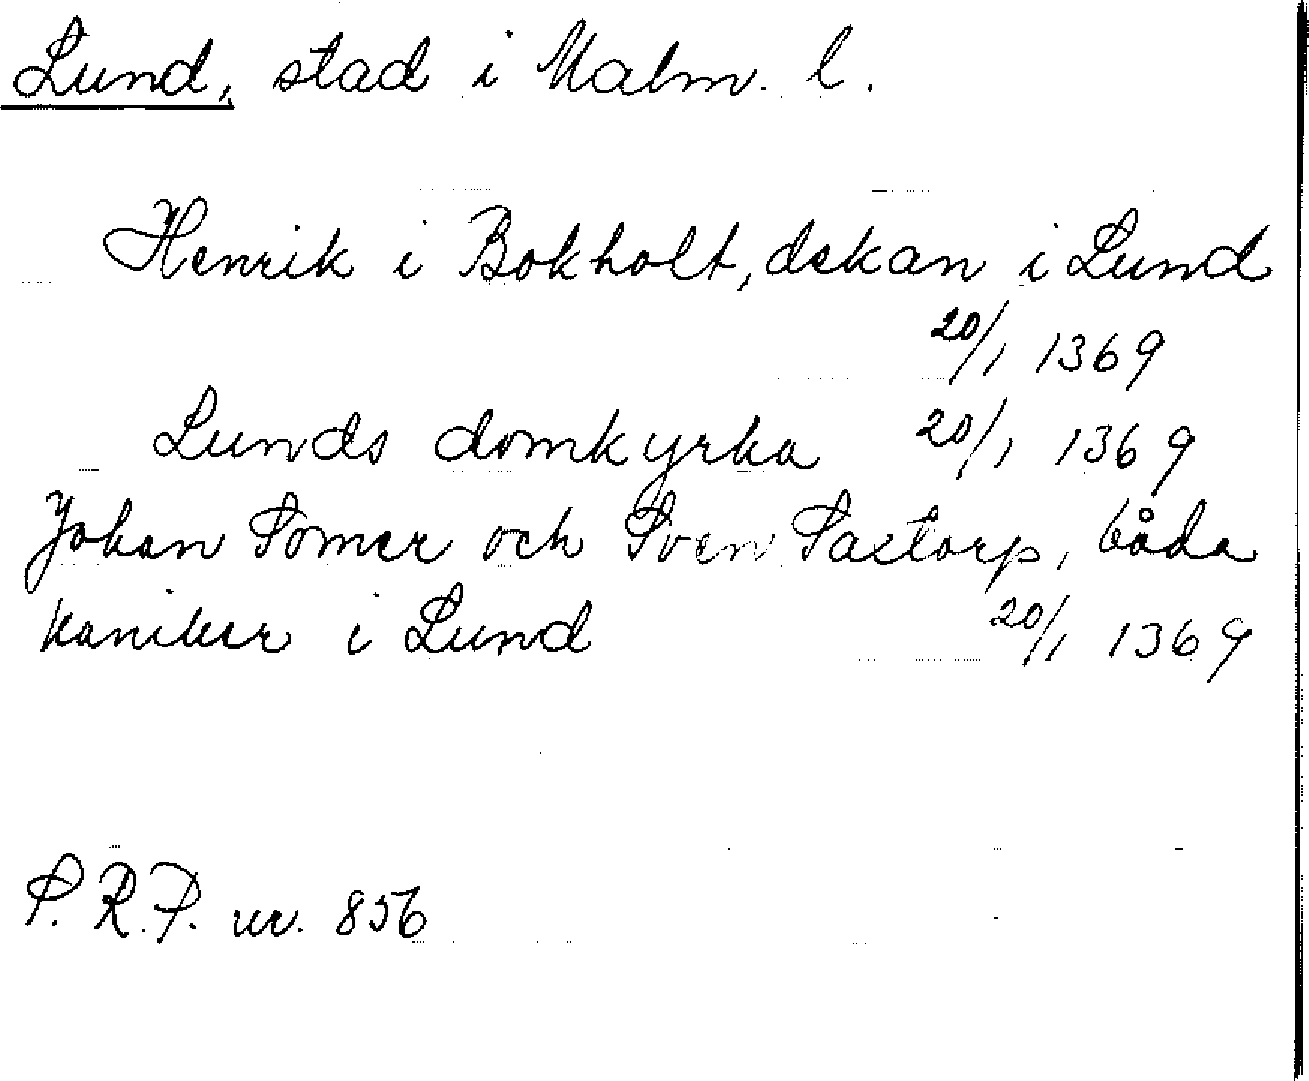 Lund, stad i Malm. l.
Henrik i Bokholt, dekan i Lund
20/1 1369
Lunds domkyrka 20/1 1369
Johan Somer och Sven Saxtorp, båda
kaniker i Lund 20/1 1369
S. R. P. nr. 856